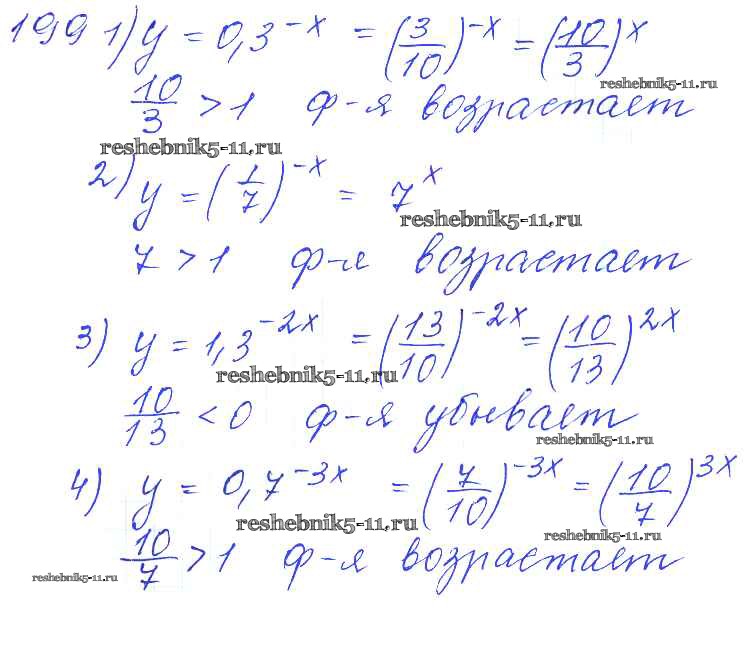 199 1) y = 0,3^{-x} = (3/10)^{-x} = (10/3)^{x}
reshebnik5-11.ru
10/3 > 1 ф-я возрастает
reshebnik5-11.ru
2) y = (1/7)^{-x} = 7^{x}
reshebnik5-11.ru
7 > 1 ф-я возрастает
3) y = 1,3^{-2x} = (13/10)^{-2x} = (10/13)^{2x}
reshebnik5-11.ru
10/13 < 0 ф-я убывает
reshebnik5-11.ru
4) y = 0,7^{-3x} = (7/10)^{-3x} = (10/7)^{3x}
reshebnik5-11.ru
reshebnik5-11.ru
10/7 > 1 ф-я возрастает
reshebnik5-11.ru